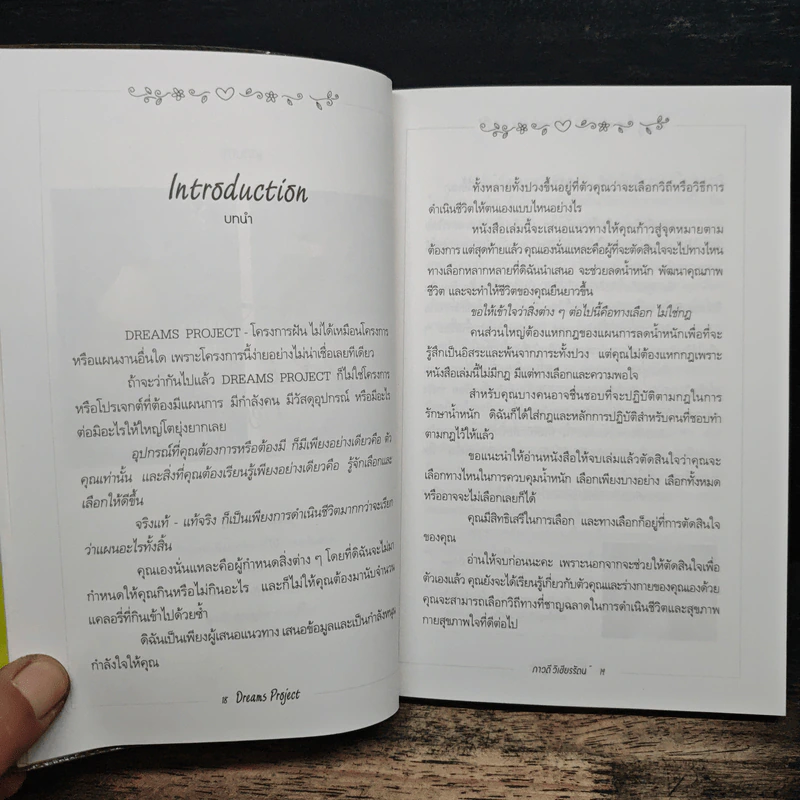 Introduction
บทนำ
DREAMS PROJECT - โครงการฝัน ไม่ได้เหมือนโครงการ
หรือแผนงานอื่นใด เพราะโครงการนี้ง่ายอย่างไม่น่าเชื่อเลยทีเดียว
ถ้าจะว่ากันไปแล้ว DREAMS PROJECT ก็ไม่ใช่โครงการ
หรือโปรเจกต์ที่ต้องมีแผนการ มีกำลังคน มีวัสดุอุปกรณ์ หรือมีอะไร
ต่อมิอะไรให้ใหญ่โตยุ่งยากเลย
อุปกรณ์ที่คุณต้องการหรือต้องมี ก็มีเพียงอย่างเดียวคือ ตัว
คุณเท่านั้น และสิ่งที่คุณต้องเรียนรู้เพียงอย่างเดียวคือ รู้จักเลือกและ
เลือกให้ดีขึ้น
จริงแท้ - แท้จริง ก็เป็นเพียงการดำเนินชีวิตมากกว่าจะเรียก
ว่าแผนอะไรทั้งสิ้น
คุณเองนั่นแหละคือผู้กำหนดสิ่งต่าง ๆ โดยที่ดิฉันจะไม่มา
กำหนดให้คุณกินหรือไม่กินอะไร และก็ไม่ให้คุณต้องมานับจำนวน
แคลอรี่ที่กินเข้าไปด้วยซ้ำ
ดิฉันเป็นเพียงผู้เสนอแนวทาง เสนอข้อมูลและเป็นกำลังหนุน
กำลังใจให้คุณ
18 Dreams Project
ทั้งหลายทั้งปวงขึ้นอยู่ที่ตัวคุณว่าจะเลือกวิถีหรือวิธีการ
ดำเนินชีวิตให้ตนเองแบบไหนอย่างไร
หนังสือเล่มนี้จะเสนอแนวทางให้คุณก้าวสู่จุดหมายตาม
ต้องการ แต่สุดท้ายแล้ว คุณเองนั่นแหละคือผู้ที่จะตัดสินใจจะไปทางไหน
ทางเลือกหลากหลายที่ดิฉันนำเสนอ จะช่วยลดน้ำหนัก พัฒนาคุณภาพ
ชีวิต และจะทำให้ชีวิตของคุณยืนยาวขึ้น
ขอให้เข้าใจว่าสิ่งต่าง ๆ ต่อไปนี้คือทางเลือก ไม่ใช่กฎ
คนส่วนใหญ่ต้องแหกกฎของแผนการลดน้ำหนักเพื่อที่จะ
รู้สึกเป็นอิสระและพ้นจากภาระทั้งปวง แต่คุณไม่ต้องแหกกฎเพราะ
หนังสือเล่มนี้ไม่มีกฎ มีแต่ทางเลือกและความพอใจ
สำหรับคุณบางคนอาจชื่นชอบที่จะปฏิบัติตามกฎในการ
รักษาน้ำหนัก ดิฉันก็ได้ใส่กฎและหลักการปฏิบัติสำหรับคนที่ชอบทำ
ตามกฎไว้ให้แล้ว
ขอแนะนำให้อ่านหนังสือให้จบเล่มแล้วตัดสินใจว่าคุณจะ
เลือกทางไหนในการควบคุมน้ำหนัก เลือกเพียงบางอย่าง เลือกทั้งหมด
หรืออาจจะไม่เลือกเลยก็ได้
คุณมีสิทธิเสรีในการเลือก และทางเลือกก็อยู่ที่การตัดสินใจ
ของคุณ
อ่านให้จบก่อนนะคะ เพราะนอกจากจะช่วยให้ตัดสินใจเพื่อ
ตัวเองแล้ว คุณยังจะได้เรียนรู้เกี่ยวกับตัวคุณและร่างกายของคุณเองด้วย
คุณจะสามารถเลือกวิถีทางที่ชาญฉลาดในการดำเนินชีวิตและสุขภาพ
กายสุขภาพใจที่ดีต่อไป
ภาวดี วิเชียรรัตน์ 19